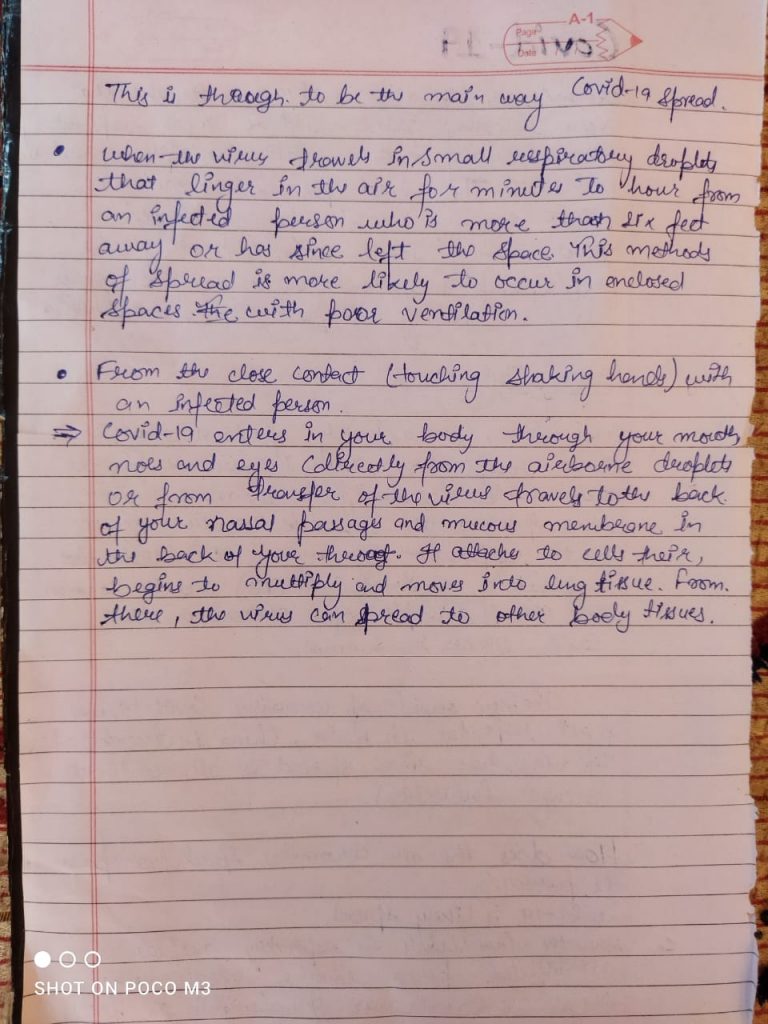 A-1
Page
Date
This is through to be the main way Covid-19 spread.
• When the virus travels in small respiratory droplets
that linger in the air for minutes to hour from
an infected person who is more than six feet
away or has since left the space. This methods
of spread is more likely to occur in enclosed
spaces the with poor ventilation.
• From the close contact (touching shaking hands) with
an infected person.
⇒ Covid-19 enters in your body through your mouth,
noes and eyes (directly from the airborne droplets
or from transfer of the virus travels to the back
of your nassal passages and mucous membrone in
the back of your throat. It attaches to cells their,
begins to multiply and moves into lung tissue. From
there, the virus can spread to other body tissues.
SHOT ON POCO M3